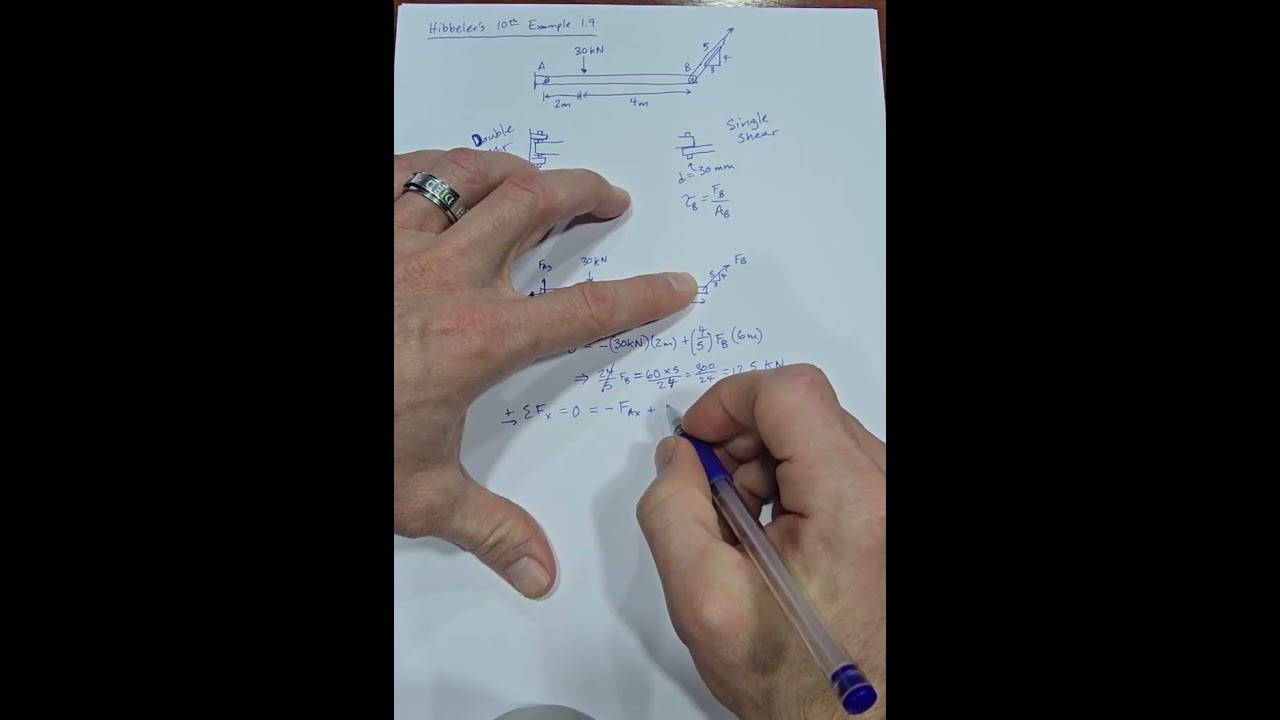 Hibbeler's 10th Example 1.9
30 kN
A
B
5
4
3
2m
4m
Double
Single
Shear
d = 30 mm
τB = FB/AB
FAy
30 kN
5
4
3
FB
= -(30kN)(2m) + (4/5) FB (6m)
⇒ 24/5 FB = 60 × 5/24 = 300/24 = 12.5 KN
+→ ΣFx = 0 = - FAx +